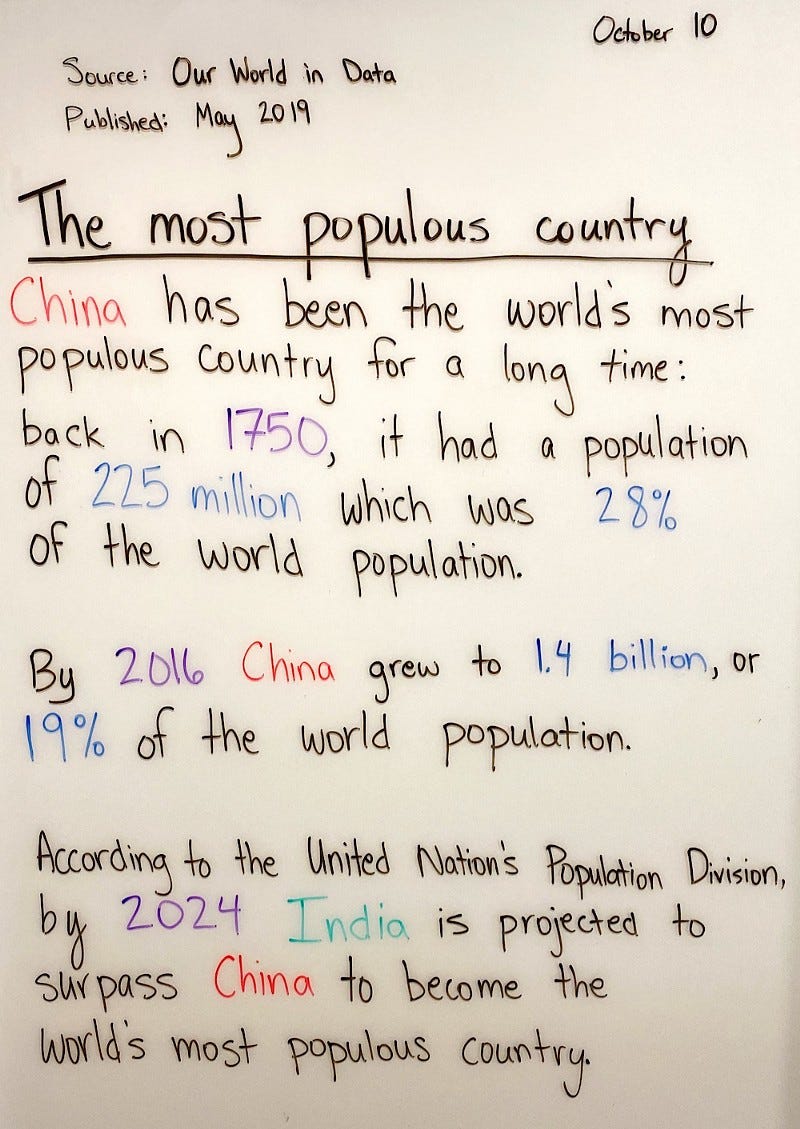 October 10
Source: Our World in Data
Published: May 2019
The most populous country
China has been the world's most
populous country for a long time:
back in 1750, it had a population
of 225 million which was 28%
of the world population.
By 2016 China grew to 1.4 billion, or
19% of the world population.
According to the United Nation's Population Division,
by 2024 India is projected to
surpass China to become the
world's most populous country.